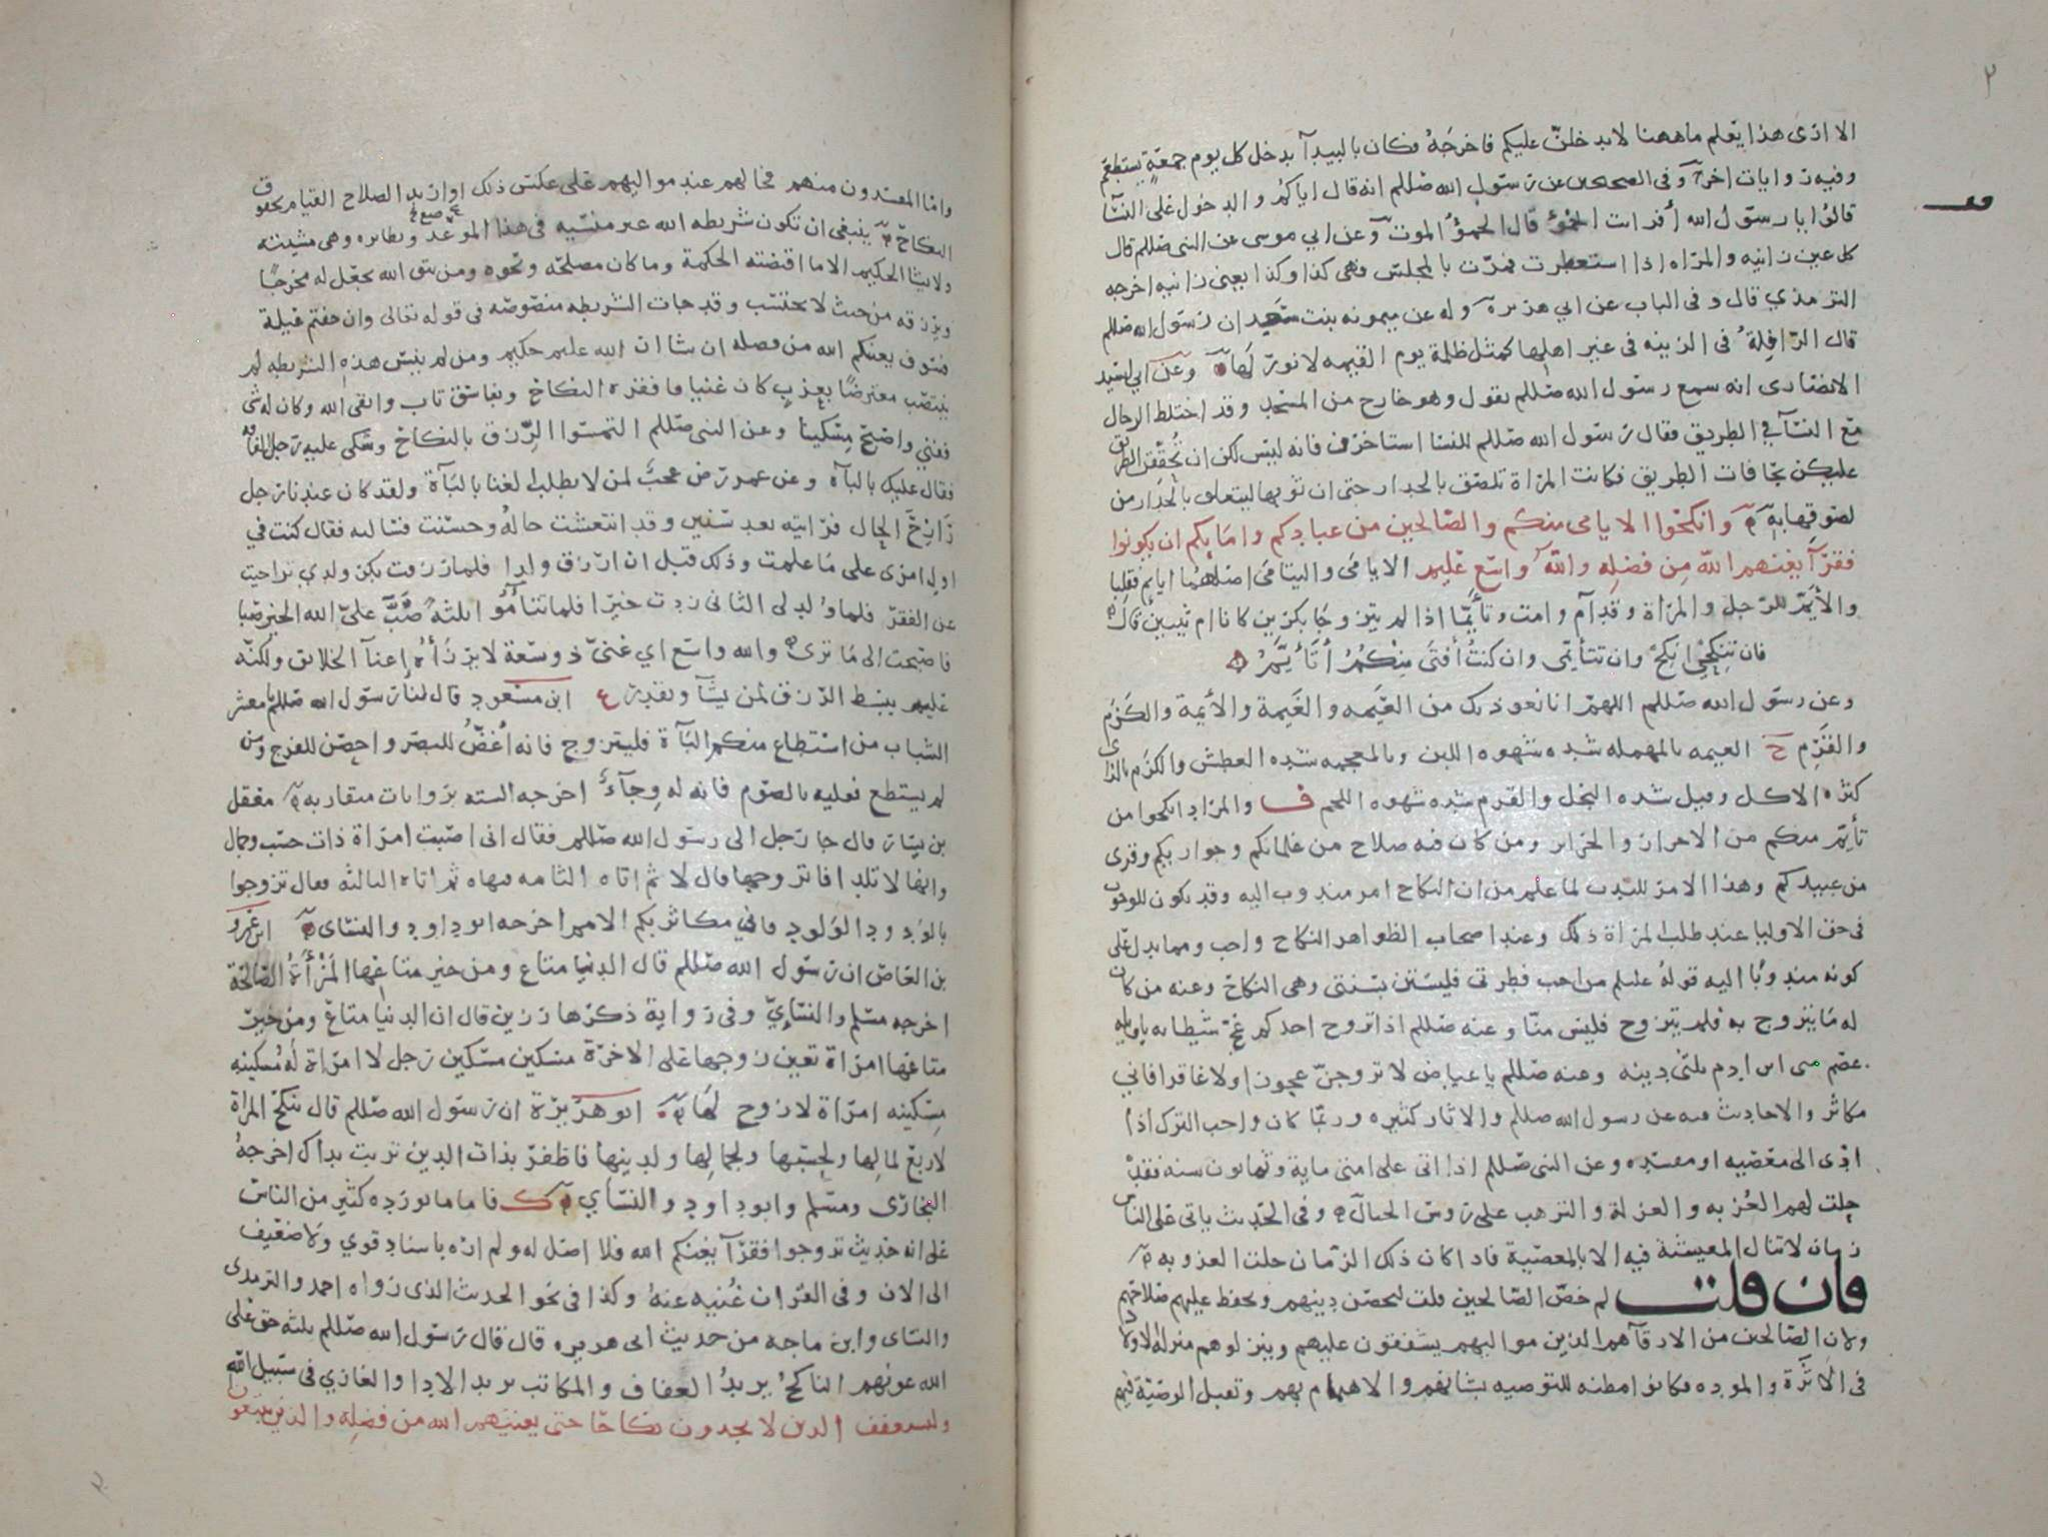 ٢
الا ارى هذا يعلم ماههنا لا يدخلن عليكم فاخرجه فكان بالبيدآ يدخل كل يوم جمعة يستطعم
وفيه روايات اخر وفى الصحيحين عن رسول الله صللم انه قال اياكم والدخول على النسآ
قالوا يا رسول الله أفرايت الحمؤ قال الحمؤ الموت وعن ابي موسى عن النبى صللم قال
كل عين زانيه والمراه اذا استعطرت فمرت بالمجلس فهى كذا وكذا يعنى زانيه اخرجه
الترمذي قال وفى الباب عن ابي هريرة وله عن ميمونه بنت سعيد ان رسول الله صللم
قال الرافلة فى الزينه فى غير اهلها كمثل ظلمة يوم القيمه لا نور لها وعن ابي اسيد
الانصارى انه سمع رسول الله صللم يقول وهو خارج من المسجد وقد اختلط الرجال
مع النسآ في الطريق فقال رسول الله صللم للنسا استاخرن فانه ليس لكن ان تحققن الطريق
عليكن بحافات الطريق فكانت المراة تلصق بالجدار حتى ان ثوبها ليتعلق بالجدار من
لصوقها به وانكحوا الايامى منكم والصالحين من عبادكم وامايكم ان يكونوا
فقرآ يغنهم الله من فضله والله واسع عليم الايامى واليتامى اصلهما ايايم فقلبا
والأيم للرجل والمراة وقد آم وامت وتأيما اذا لم يتزوجا بكرين كانا ام ثيبين قال
فان تنكحي انكح وان تتأيمى وان كنت أفتى منكم أتأيم
وعن رسول الله صللم اللهم انا نعوذ بك من العيمه والغيمة والأيمة والكزم
والقرم ح العيمه بالمهمله شده شهوه اللبن وبالمعجمه شده العطش والكزم بالزاى
كثره الاكل وقيل شده البخل والقرم شده شهوه اللحم ف والمراد انكحوا من
تأيم منكم من الاحرار والحراير ومن كان فيه صلاح من غلمانكم وجواريكم وقرى
من عبيدكم وهذا الامر للندب لما علم من ان النكاح امر مندوب اليه وقد يكون للوجوب
فى حق الاوليا عند طلب المراة ذلك وعند اصحاب الظواهر النكاح واجب ومما يدل على
كونه مندوبا اليه قوله عليلم من احب فطرتى فليستن بسنتى وهى النكاح وعنه من كان
له ما يتزوج به فلم يتزوج فليس منا وعنه صللم اذا تزوج احدكم عج شيطانه ياويله
عصم منى ابن ادم ثلثى دينه وعنه صللم يا عياض لا تزوجن عجوزا ولا عاقرا فاني
مكاثر والاحاديث فيه عن رسول الله صللم والاثار كثيره وربما كان واجب الترك اذا
ادى الى معصيه او مفسده وعن النبى صللم اذا اتى على امتى ماية وثمانون سنه فقد
حلت لهم العزبه والعزلة والترهب على روس الجبال وفى الحديث ياتى على الناس
زمان لا تنال المعيشة فيه الا بالمعصية فاذا كان ذلك الزمان حلت العزوبه
فان قلت لم خص الصالحين قلت ليحصن دينهم ويحفظ عليهم صلاحهم
ولان الصالحين من الارقآ هم الذين مواليهم يشفقون عليهم وينزلوهم منزله الاولاد
فى الاثرة والموده فكانوا مظنه للتوصيه بشانهم والاهتمام بهم وتقبل الوصية فيهم
واما المفسدون منهم فحالهم عند مواليهم على عكس ذلك او اريد بالصلاح القيام بحقوق
النكاح ينبغى ان تكون شريطه الله غير منسيه فى هذا الموعد ونظايره وهى مشيئته
ولا يشا الحكيم الا ما اقتضته الحكمة وما كان مصلحه ونحوه ومن يتق الله يجعل له مخرجا
ويرزقه من حيث لا يحتسب وقد جات الشريطه منصوصه فى قوله تعالى وان خفتم عيلة
فسوف يغنيكم الله من فضله ان شا ان الله عليم حكيم ومن لم ينس هذه الشريطه لم
ينتصب معترضا بعزب كان غنيا فافقره النكاح وبفاسق تاب واتقى الله وكان له شى
ففنى واصبح مسكينا وعن النبى صللم التمسوا الرزق بالنكاح وشكى عليه رجل الفاقه
فقال عليك بالبآه وعن عمر رض عجب لمن لا يطلب الغنا بالبآة ولقد كان عندنا رجل
رازح الحال فرايته بعد سنين وقد انتعشت حاله وحسنت فسالته فقال كنت في
اول امرى على ما علمت وذلك قبل ان ارزق ولدا فلما رزقت بكر ولدي تراخيت
عن الفقر فلما ولد لى الثانى زدت خيرا فلما تتأموا ثلثة صب علي الله الخير صبا
فاصبحت الى ما ترى والله واسع اي غنى ذو سعة لا يرزأه إغنآ الخلايق ولكنه
عليم يبسط الرزق لمن يشآ ويقدر ع ابن مسعود قال لنا رسول الله صللم يا معشر
الشباب من استطاع منكم البآة فليتزوج فانه أغض للبصر واحصن للفرج ومن
لم يستطع فعليه بالصوم فانه له وجآء اخرجه الستة بروايات متقاربه معقل
بن يسار قال جا رجل الى رسول الله صللم فقال انى اصبت امراة ذات حسب وجمال
وانها لا تلد افاتزوجها قال لا ثم اتاه الثانيه فنهاه ثم اتاه الثالثه فقال تزوجوا
بالودود الولود فاني مكاثر بكم الامم اخرجه ابو داود والنساى ابن عمرو
بن العاص ان رسول الله صللم قال الدنيا متاع ومن خير متاعها المرأة الصالحة
اخرجه مسلم والنسايي وفى رواية ذكرها رزين قال ان الدنيا متاع ومن خير
متاعها امراة تعين زوجها على الاخرة مسكين مسكين رجل لا امراة له مسكينه
مسكينه امراة لا زوج لها ابو هريرة ان رسول الله صللم قال تنكح المراة
لاربع لمالها ولحسبها ولجمالها ولدينها فاظفر بذات الدين تربت يداك اخرجه
البخارى ومسلم وابو داود والنسأي ك فاما ما يورده كثير من الناس
على انه حديث تزوجوا فقرآ يغنكم الله فلا اصل له ولم اره باسناد قوي ولا ضعيف
الى الان وفى القران غنيه عنه وكذا فى نحو الحديث الذى رواه احمد والترمذى
والنساى وابن ماجه من حديث ابى هريره قال قال رسول الله صللم ثلثه حق على
الله عونهم الناكح يريد العفاف والمكاتب يريد الادا والغازي فى سبيل الله
وليستعفف الذين لا يجدون نكاحا حتى يغنيهم الله من فضله والذين يبتغون